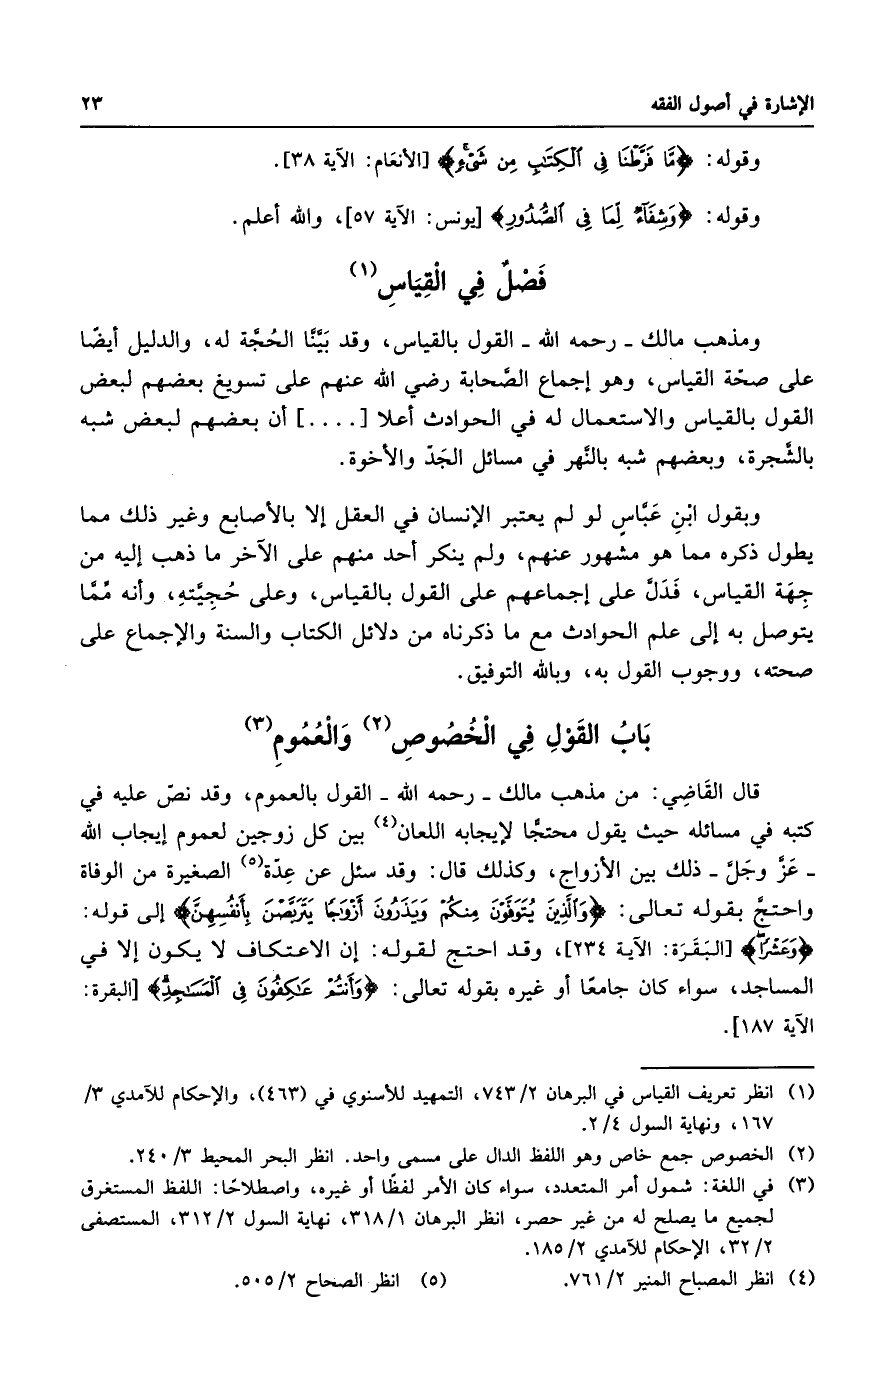 الإشارة في أصول الفقه ٢٣
وقوله: ﴿مَّا فَرَّطْنَا فِي ٱلْكِتَٰبِ مِن شَيْءٍ﴾ [الأنعَام: الآية ٣٨].
وقوله: ﴿وَشِفَآءٌ لِّمَا فِي ٱلصُّدُورِ﴾ [يونس: الآية ٥٧]، والله أعلم.
فَصْلٌ فِي الْقِيَاسِ(١)
ومذهب مالك ـ رحمه الله ـ القول بالقياس، وقد بَيَّنَّا الحُجَّة له، والدليل أيضًا
على صحّة القياس، وهو إجماع الصَّحابة رضي الله عنهم على تسويغ بعضهم لبعض
القول بالقياس والاستعمال له في الحوادث أعلا [....] أن بعضهم لبعض شبه
بالشَّجرة، وبعضهم شبه بالنَّهر في مسائل الجَدّ والأخوة.
وبقول ابْنِ عَبَّاسٍ لو لم يعتبر الإنسان في العقل إلا بالأصابع وغير ذلك مما
يطول ذكره مما هو مشهور عنهم، ولم ينكر أحد منهم على الآخر ما ذهب إليه من
جِهَة القياس، فَدَلَّ على إجماعهم على القول بالقياس، وعلى حُجِيَّتهِ، وأنه مِّمَّا
يتوصل به إلى علم الحوادث مع ما ذكرناه من دلائل الكتاب والسنة والإجماع على
صحته، ووجوب القول به، وبالله التوفيق.
بَابُ القَوْلِ فِي الْخُصُوصِ(٢) وَالْعُمُومِ(٣)
قال القَاضِي: من مذهب مالك ـ رحمه الله ـ القول بالعموم، وقد نصّ عليه في
كتبه في مسائله حيث يقول محتجًّا لإيجابه اللعان(٤) بين كل زوجين لعموم إيجاب الله
ـ عَزَّ وجَلَّ ـ ذلك بين الأزواج، وكذلك قال: وقد سئل عن عِدّة(٥) الصغيرة من الوفاة
واحتجَّ بقوله تعالى: ﴿وَٱلَّذِينَ يُتَوَفَّوْنَ مِنكُمْ وَيَذَرُونَ أَزْوَٰجًا يَتَرَبَّصْنَ بِأَنفُسِهِنَّ﴾ إلى قوله:
﴿وَعَشْرًا﴾ [البَقَرَة: الآية ٢٣٤]، وقد احتج لقوله: إن الاعتكاف لا يكون إلا في
المساجد، سواء كان جامعًا أو غيره بقوله تعالى: ﴿وَأَنتُمْ عَٰكِفُونَ فِي ٱلْمَسَٰجِدِ﴾ [البقرة:
الآية ١٨٧].
(١) انظر تعريف القياس في البرهان ٢/ ٧٤٣، التمهيد للأسنوي في (٤٦٣)، والإحكام للآمدي ٣/
١٦٧، ونهاية السول ٤/ ٢.
(٢) الخصوص جمع خاص وهو اللفظ الدال على مسمى واحد. انظر البحر المحيط ٣/ ٢٤٠.
(٣) في اللغة: شمول أمر المتعدد، سواء كان الأمر لفظًا أو غيره، واصطلاحًا: اللفظ المستغرق
لجميع ما يصلح له من غير حصر، انظر البرهان ١/ ٣١٨، نهاية السول ٢/ ٣١٢، المستصفى
٢/ ٣٢، الإحكام للآمدي ٢/ ١٨٥.
(٤) انظر المصباح المنير ٢/ ٧٦١. (٥) انظر الصحاح ٢/ ٥٠٥.